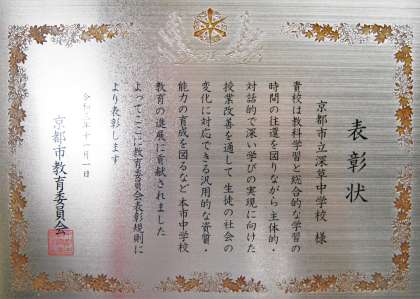 表彰状
京都市立深草中学校 様
貴校は教科学習と総合的な学習の
時間の往還を図りながら主体的・
対話的で深い学びの実現に向けた
授業改善を通して 生徒の社会の
変化に対応できる汎用的な資質・
能力の育成を図るなど 本市中学校
教育の進展に貢献されました
よってここに教育委員会表彰規則に
より表彰します
十一月一日
京都市教育委員会